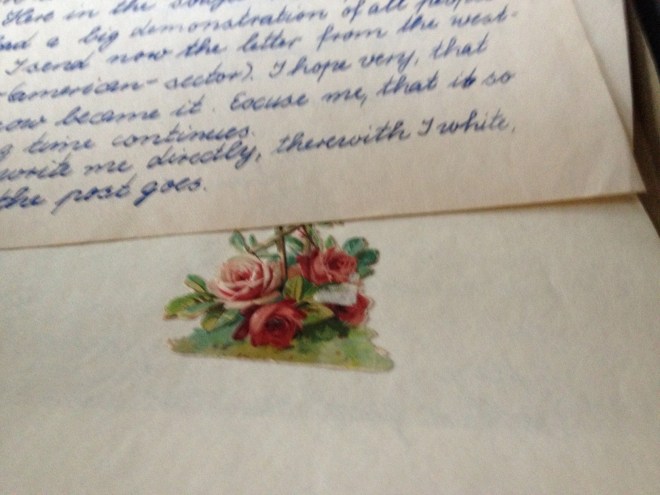 Here in the
had a big demonstration of all
I send now the letter from the west-
(american-sector). I hope very, that
now became it. Excuse me, that it so
g time continues.
write me directly, therewith I white,
the post goes.